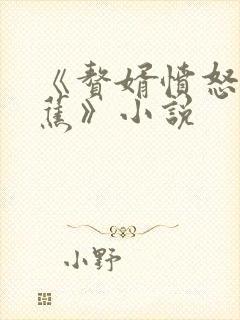 《赘婿愤怒
蕉》小说
小野